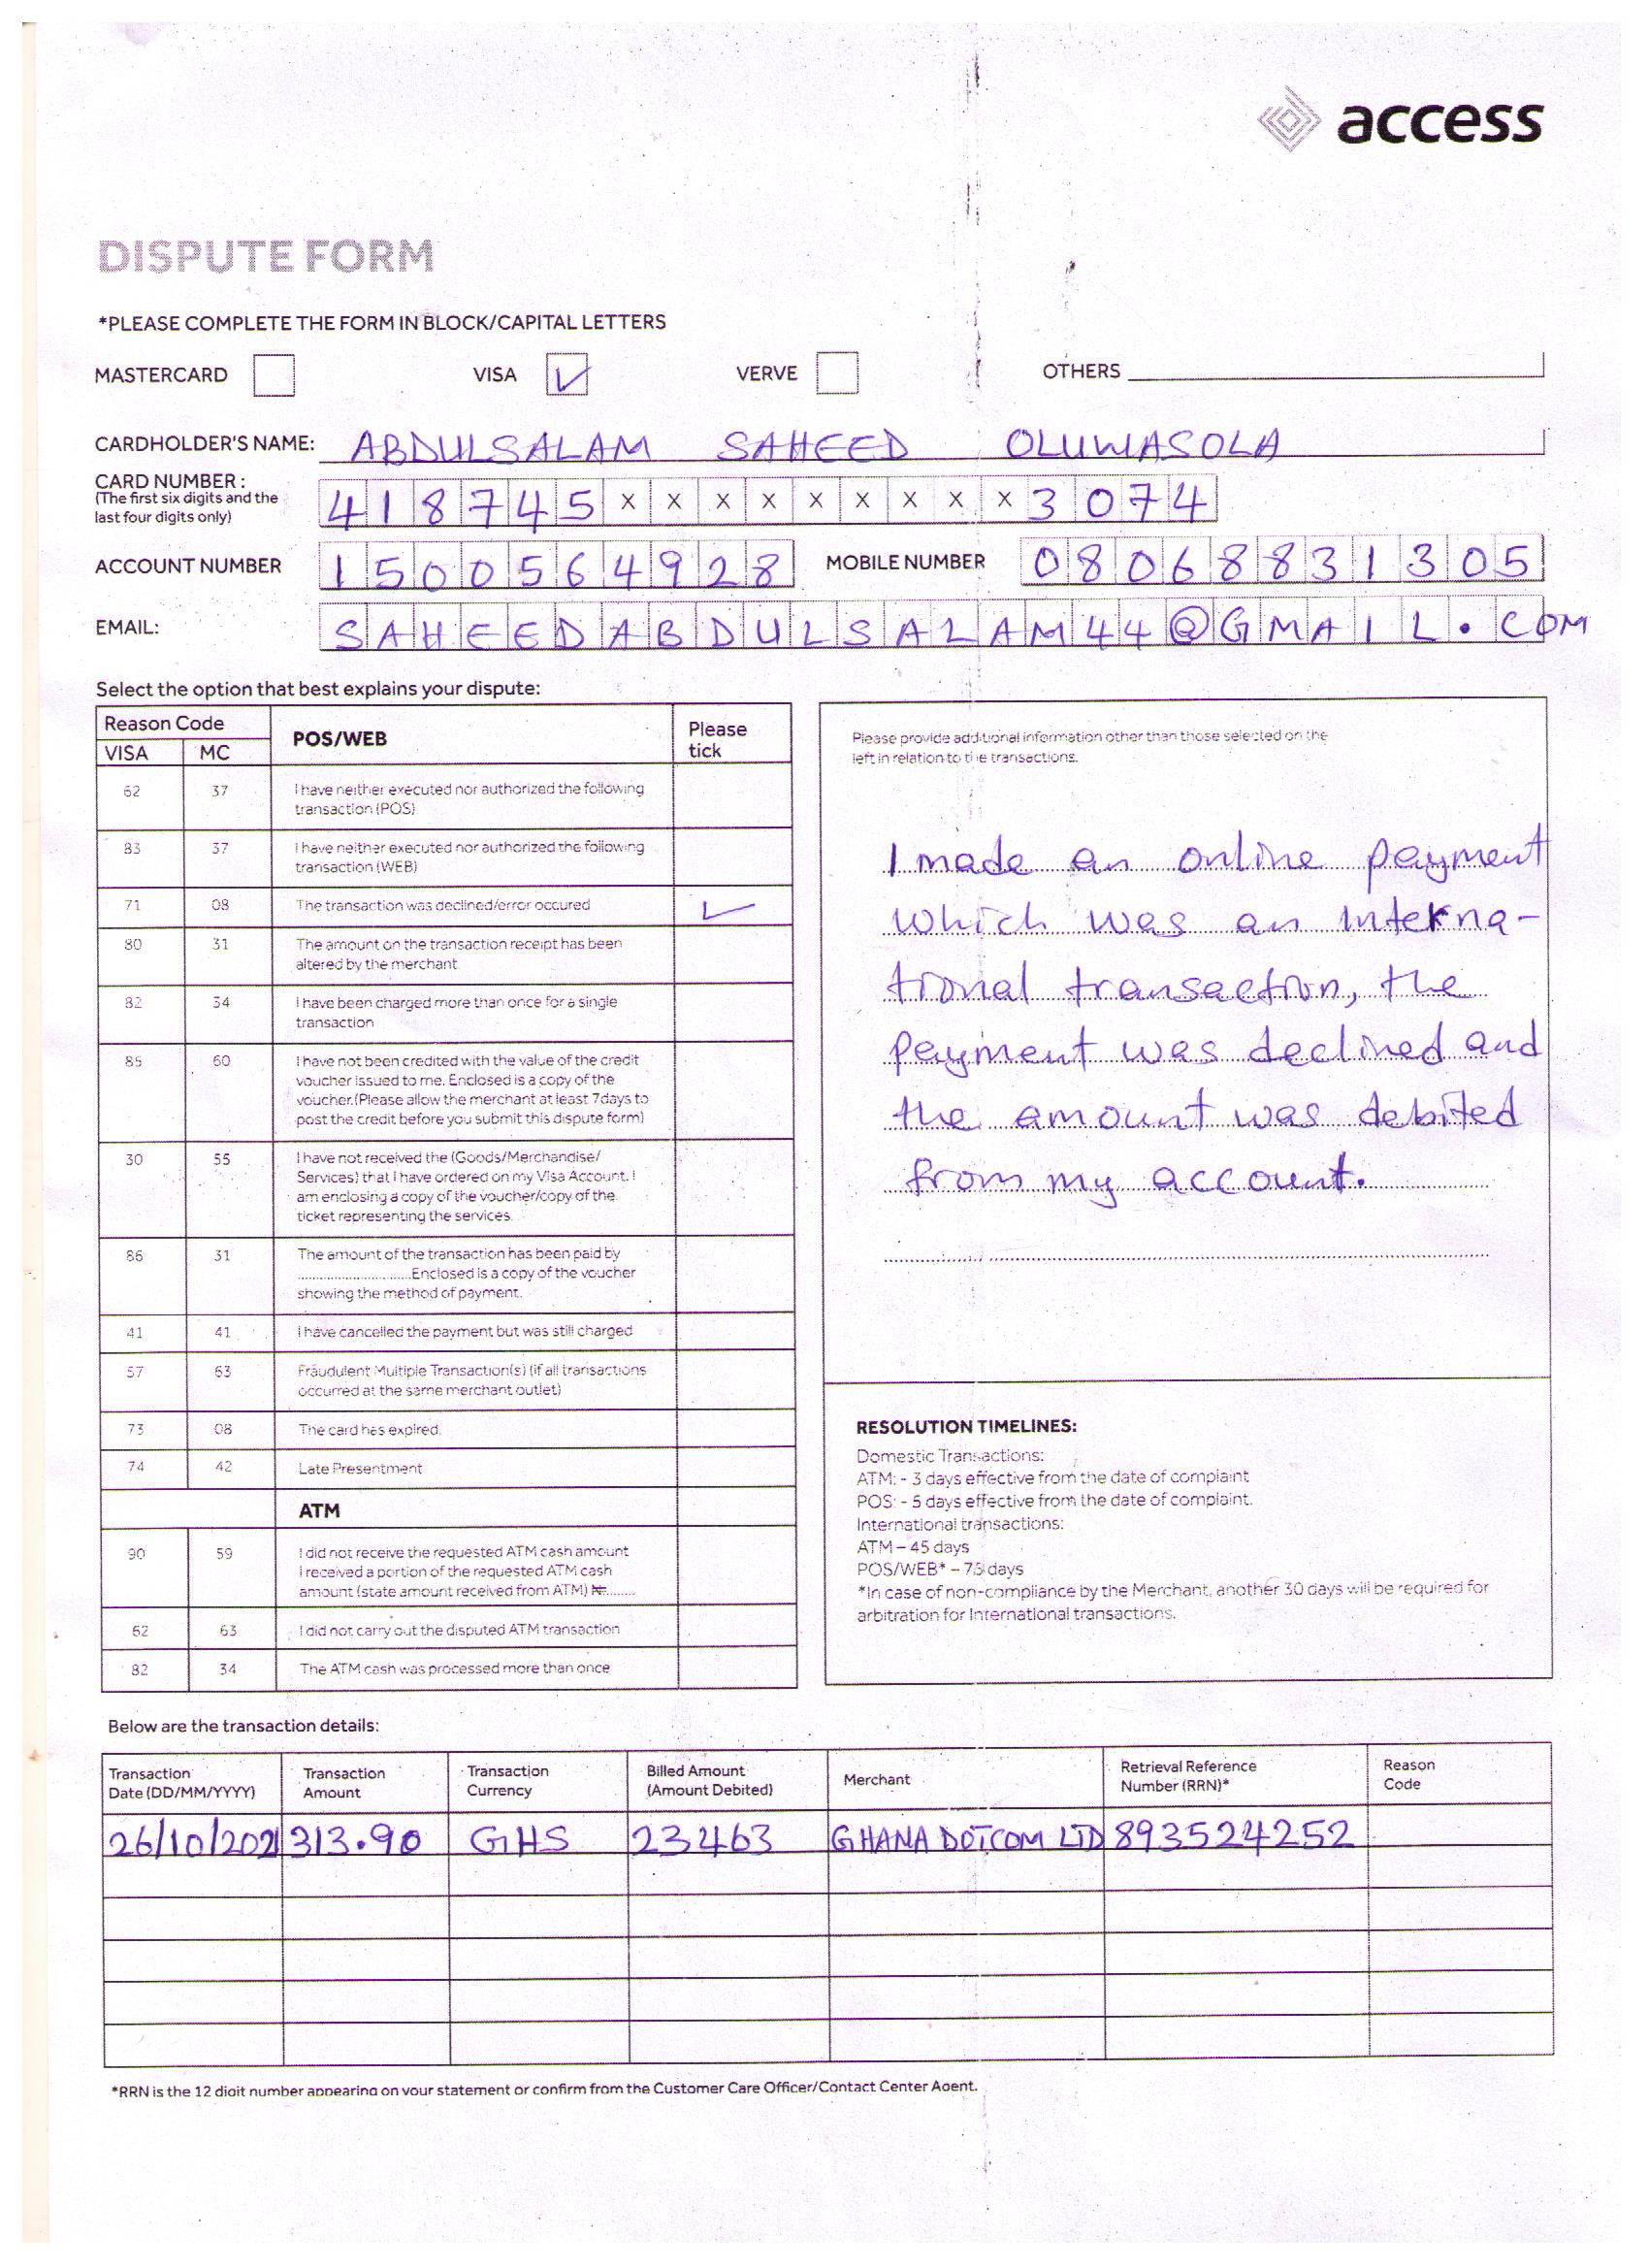 access
DISPUTE FORM
*PLEASE COMPLETE THE FORM IN BLOCK/CAPITAL LETTERS
MASTERCARD VISA ✓ VERVE OTHERS
CARDHOLDER'S NAME: ABDULSALAM SAHEED OLUWASOLA
CARD NUMBER :
(The first six digits and the
last four digits only)
418745 x x x x x x x x x 3074
ACCOUNT NUMBER 1500564928 MOBILE NUMBER 08068831305
EMAIL: SAHEEDABDULSALAM44@GMAIL.COM
Select the option that best explains your dispute:
Reason Code POS/WEB Please tick
VISA MC
62 37 I have neither executed nor authorized the following
transaction (POS)
83 37 I have neither executed nor authorized the following
transaction (WEB)
71 08 The transaction was declined/error occured ✓
80 31 The amount on the transaction receipt has been
altered by the merchant
82 34 I have been charged more than once for a single
transaction
85 60 I have not been credited with the value of the credit
voucher issued to me. Enclosed is a copy of the
voucher.(Please allow the merchant at least 7days to
post the credit before you submit this dispute form)
30 55 I have not received the (Goods/Merchandise/
Services) that I have ordered on my Visa Account. I
am enclosing a copy of the voucher/copy of the
ticket representing the services.
86 31 The amount of the transaction has been paid by
..............................Enclosed is a copy of the voucher
showing the method of payment.
41 41 I have cancelled the payment but was still charged
57 63 Fraudulent Multiple Transaction(s) (if all transactions
occurred at the same merchant outlet)
73 08 The card has expired.
74 42 Late Presentment
ATM
90 59 I did not receive the requested ATM cash amount
I received a portion of the requested ATM cash
amount (state amount received from ATM) ₦.........
62 63 I did not carry out the disputed ATM transaction
82 34 The ATM cash was processed more than once
Please provide additional information other than those selected on the
left in relation to the transactions.
I made an online payment
which was an interna-
tional transaction, the
payment was declined and
the amount was debited
from my account.
RESOLUTION TIMELINES:
Domestic Transactions:
ATM: - 3 days effective from the date of complaint
POS: - 5 days effective from the date of complaint.
International transactions:
ATM – 45 days
POS/WEB* – 75 days
*In case of non-compliance by the Merchant, another 30 days will be required for
arbitration for International transactions.
Below are the transaction details:
Transaction Date (DD/MM/YYYY) Transaction Amount Transaction Currency Billed Amount (Amount Debited) Merchant Retrieval Reference Number (RRN)* Reason Code
26/10/2021 313.90 GHS 23463 GHANA DOTCOM LTD 893524252
*RRN is the 12 digit number appearing on your statement or confirm from the Customer Care Officer/Contact Center Agent.